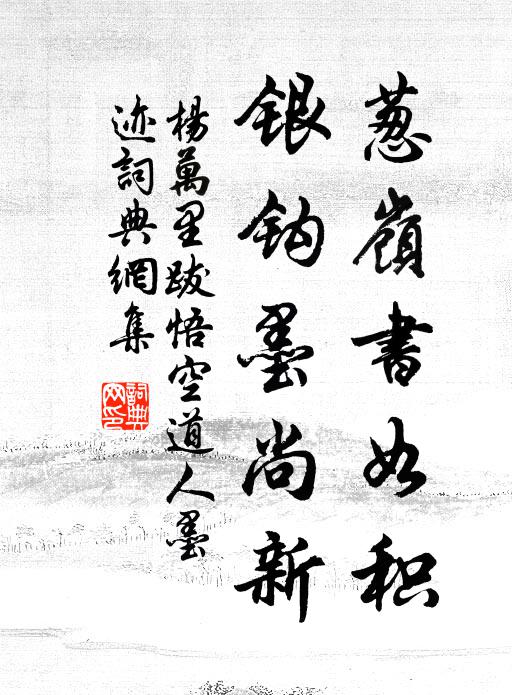 葱嶺書如积
銀鈎墨尚新
楊萬里跋悟空道人墨
迹詞典網集
詞典
网印